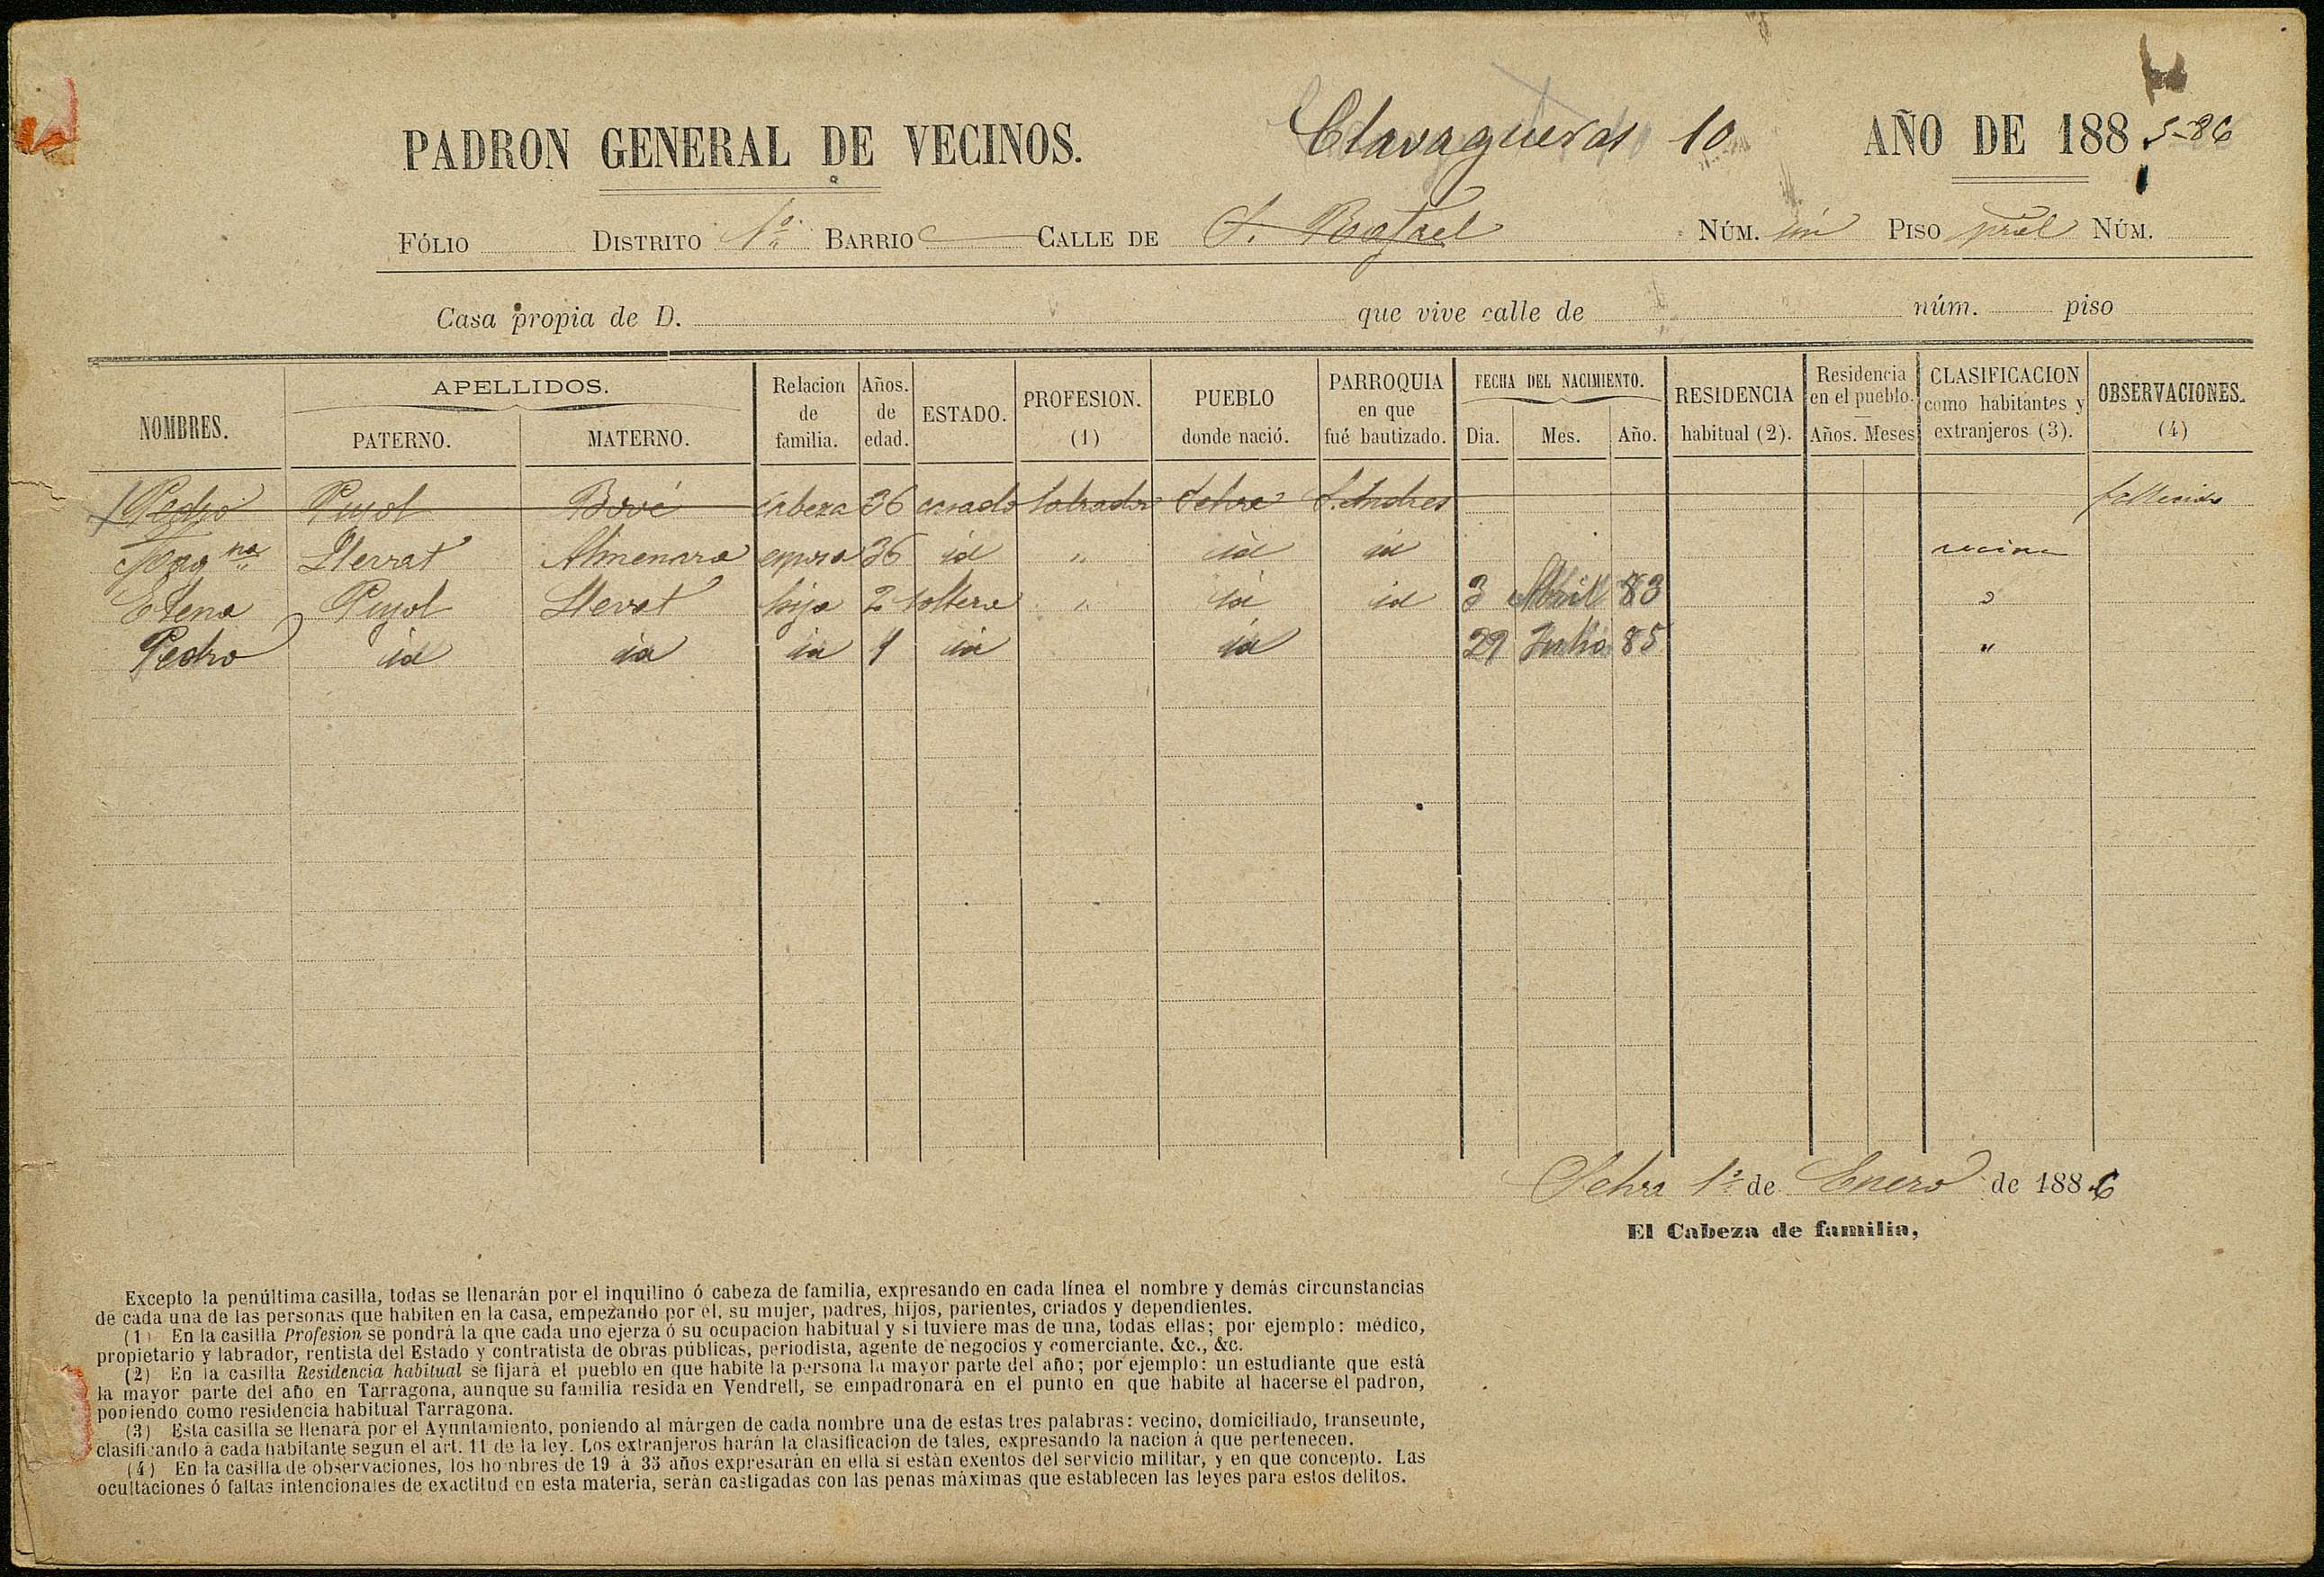 PADRON GENERAL DE VECINOS. Clavagueras 10 AÑO DE 188 5-86
FÓLIO DISTRITO 1º BARRIO CALLE DE S. Rafael NÚM. s/n PISO pral NÚM.
Casa propia de D. que vive calle de núm. piso
NOMBRES. APELLIDOS. PATERNO. MATERNO. Relacion de familia. Años. de edad. ESTADO. PROFESION. (1) PUEBLO donde nació. PARROQUIA en que fué bautizado. FECHA DEL NACIMIENTO. Dia. Mes. Año. RESIDENCIA habitual (2). Residencia en el pueblo. Años. Meses CLASIFICACION como habitantes y extranjeros (3). OBSERVACIONES. (4)
Pedro Pujol Bové cabeza 36 casado labrador Selva S. Andres fallecido
Magna Llevat Almenara esposa 36 id " id id vecina
Elena Pujol Llevat hija 2 soltera " id id 3 Abril 83 "
Pedro id id id 1 id id 29 Julio 85 "
Selva 1º de Enero de 1886
El Cabeza de familia,
Excepto la penúltima casilla, todas se llenarán por el inquilino ó cabeza de familia, expresando en cada línea el nombre y demás circunstancias
de cada una de las personas que habiten en la casa, empezando por el, su mujer, padres, hijos, parientes, criados y dependientes.
(1) En la casilla Profesion se pondrá la que cada uno ejerza ó su ocupacion habitual y si tuviere mas de una, todas ellas; por ejemplo: médico,
propietario y labrador, rentista del Estado y contratista de obras públicas, periodista, agente de negocios y comerciante, &c., &c.
(2) En la casilla Residencia habitual se fijará el pueblo en que habite la persona la mayor parte del año; por ejemplo: un estudiante que está
la mayor parte del año en Tarragona, aunque su familia resida en Vendrell, se empadronará en el punto en que habite al hacerse el padron,
poniendo como residencia habitual Tarragona.
(3) Esta casilla se llenará por el Ayuntamiento, poniendo al márgen de cada nombre una de estas tres palabras: vecino, domiciliado, transeunte,
clasificando á cada habitante segun el art. 11 de la ley. Los extranjeros harán la clasificacion de tales, expresando la nacion á que pertenecen.
(4) En la casilla de observaciones, los hombres de 19 á 35 años expresarán en ella si están exentos del servicio militar, y en que concepto. Las
ocultaciones ó faltas intencionales de exactitud en esta materia, serán castigadas con las penas máximas que establecen las leyes para estos delitos.